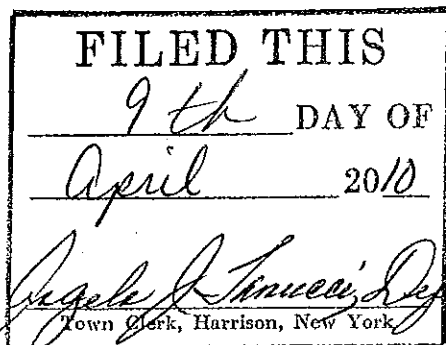 FILED THIS
9th DAY OF
April 2010
Angela J.
Town Clerk, Harrison, New York